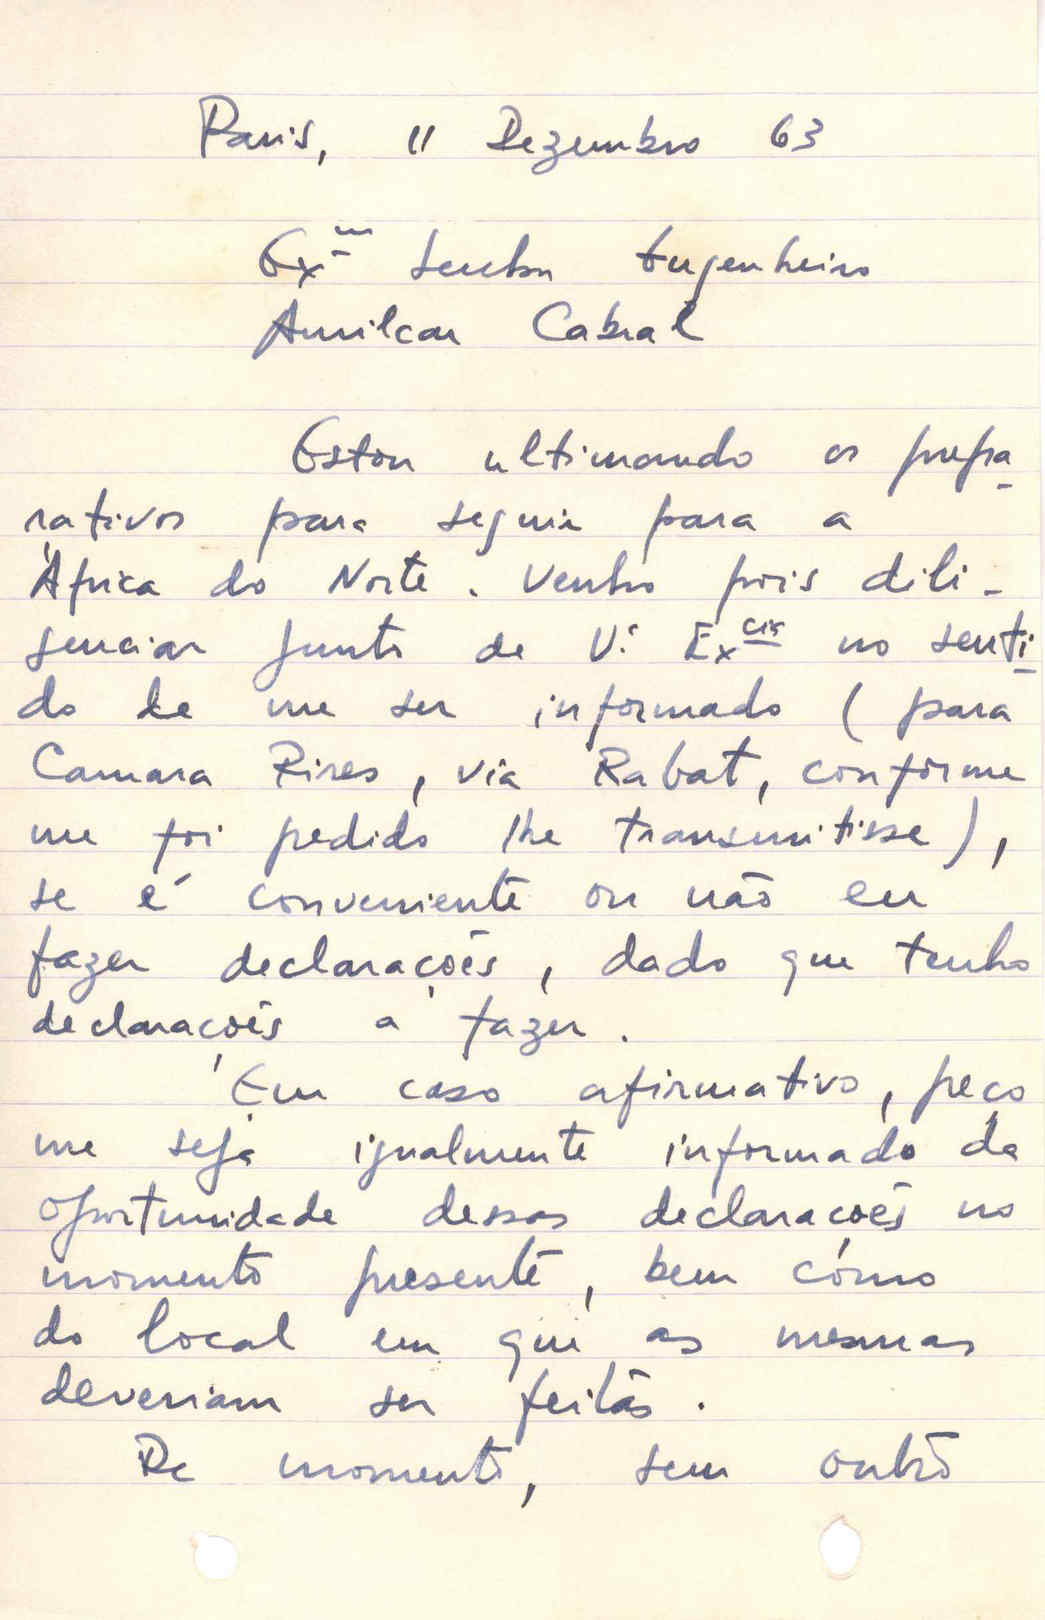 Paris, 11 Dezembro 63
Exmº Senhor Engenheiro
Amilcar Cabral
Estou ultimando os prepa-
rativos para seguir para a
África do Norte. Venho pois dili-
genciar junto de V.ª Excia no senti-
do de me ser informado (para
Camara Pires, via Rabat, conforme
me foi pedido lhe transmitisse),
se é conveniente ou não eu
fazer declarações, dado que tenho
declarações a fazer.
Em caso afirmativo, peço
me seja igualmente informado da
oportunidade dessas declarações no
momento presente, bem como
do local em que as mesmas
deveriam ser feitas.
De momento, sem outro